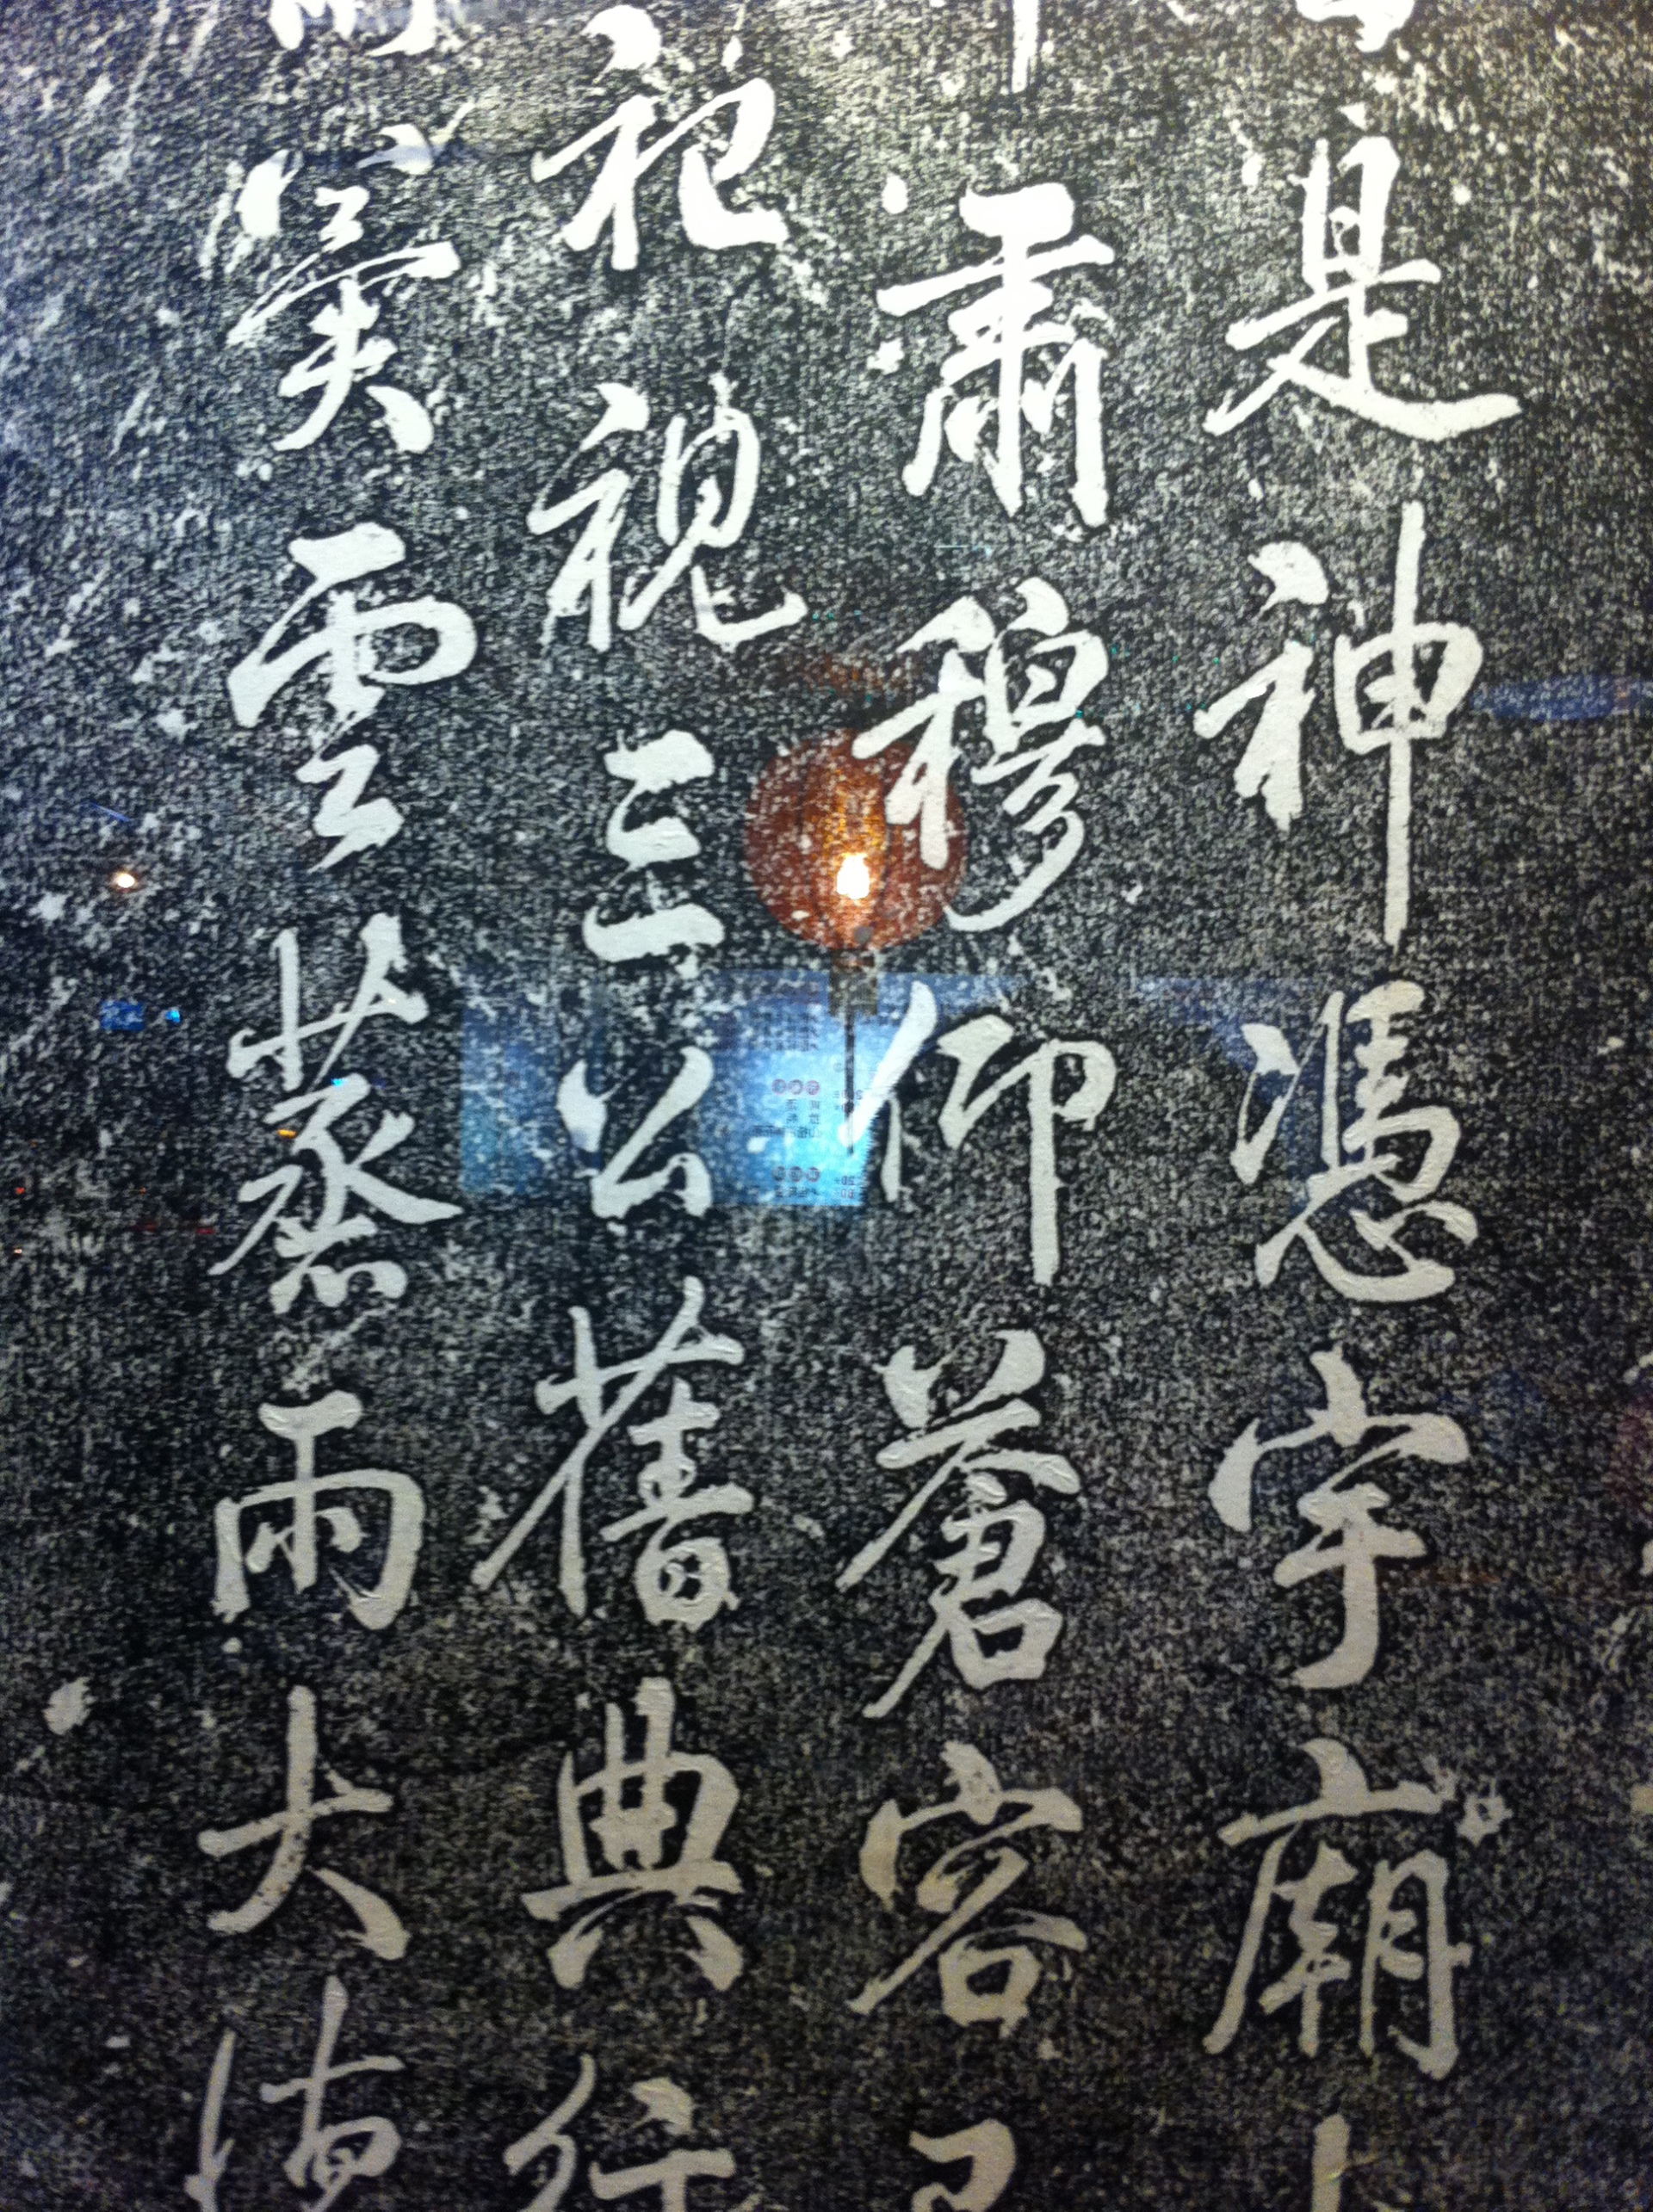 是神憑宇廟
肅穆仰蒼容
祀視三公舊典
實雲蒸雨大德